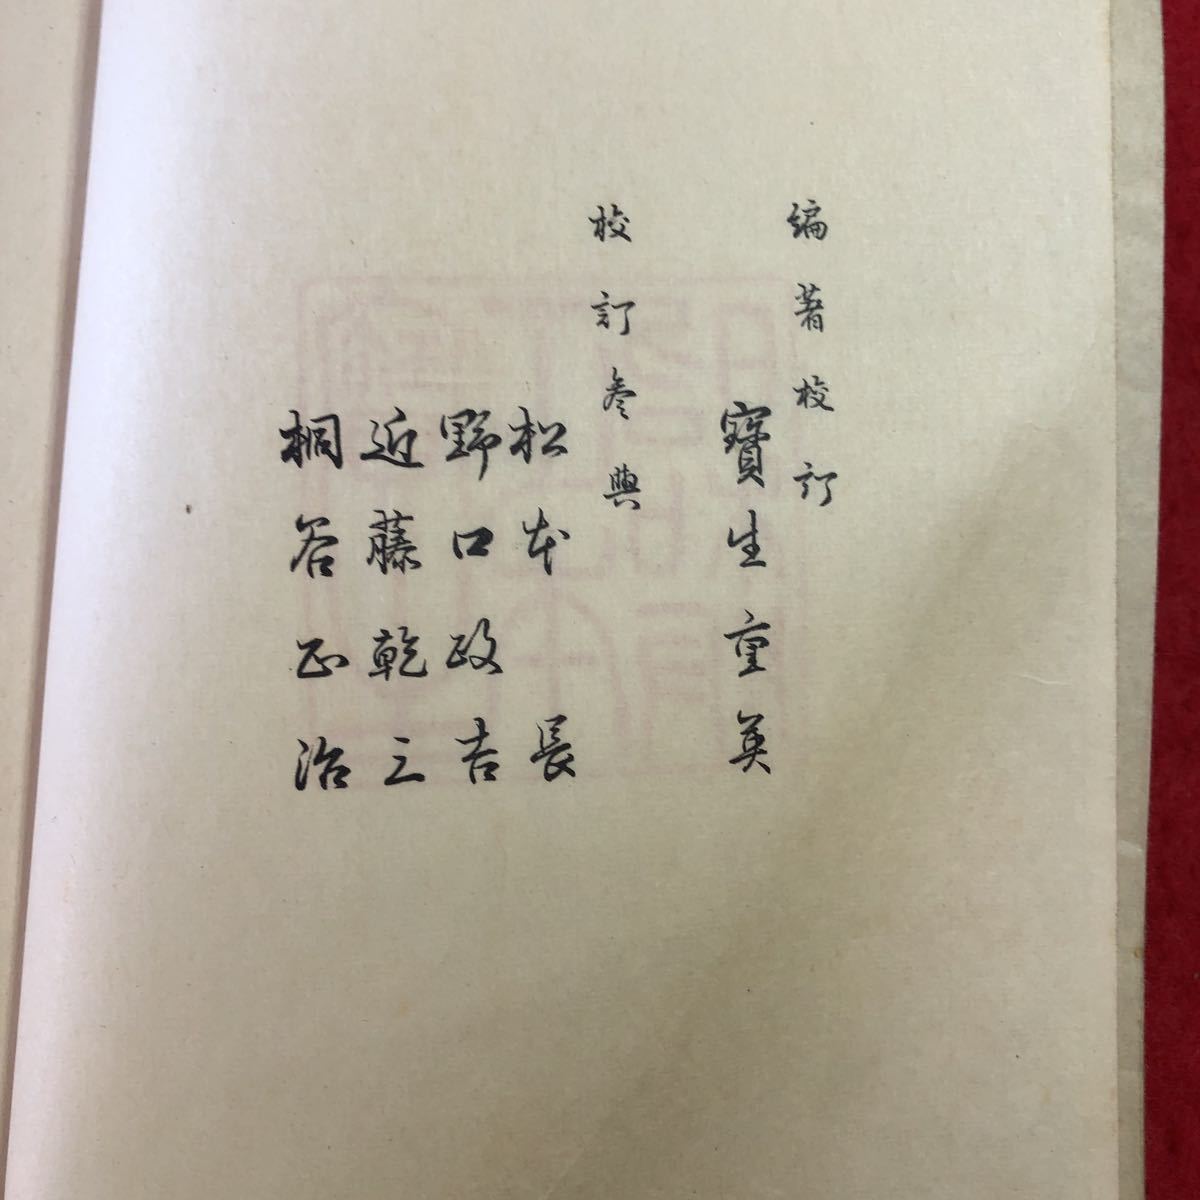 編著校訂
寶生重英
校訂參與
松本長
野口政吉
近藤乾三
桐谷正治